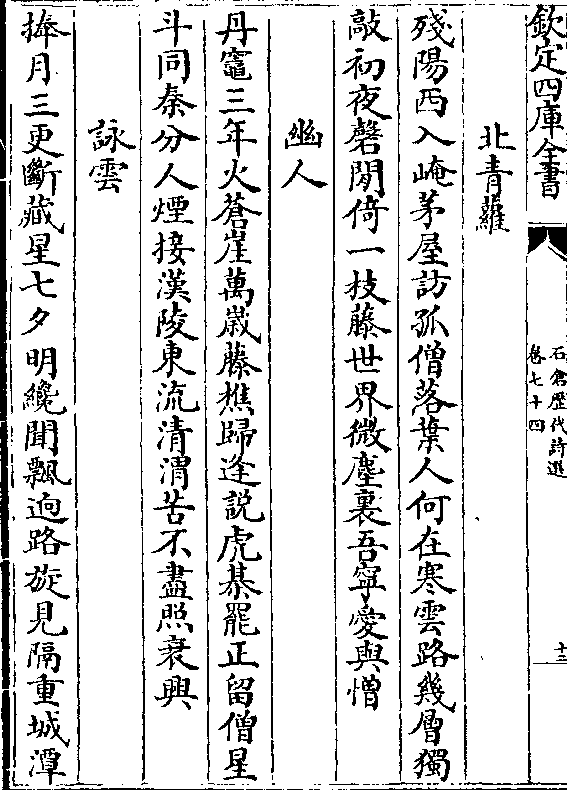 欽定四庫全書
石倉歷代詩選
卷七十四
十三
北青蘿
殘陽西入崦茅屋訪孤僧落葉人何在寒雲路幾層獨
敲初夜磬閒倚一枝藤世界微塵裏吾寧愛與憎
幽人
丹竈三年火蒼崖萬歲藤樵歸逢說虎棊罷正留僧星
斗同秦分人煙接漢陵東流清渭苦不盡照衰興
詠雲
捧月三更斷藏星七夕明纔聞飄迥路旋見隔重城潭